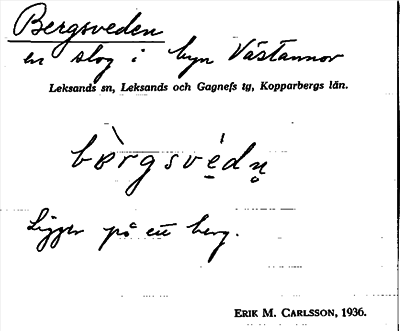 Bergsveden
en skog i byn Västannor
Leksands sn, Leksands och Gagnefs tg, Kopparbergs län.
bè̀rgsvé̱dn̥
Ligger på ett berg.
ERIK M. CARLSSON, 1936.